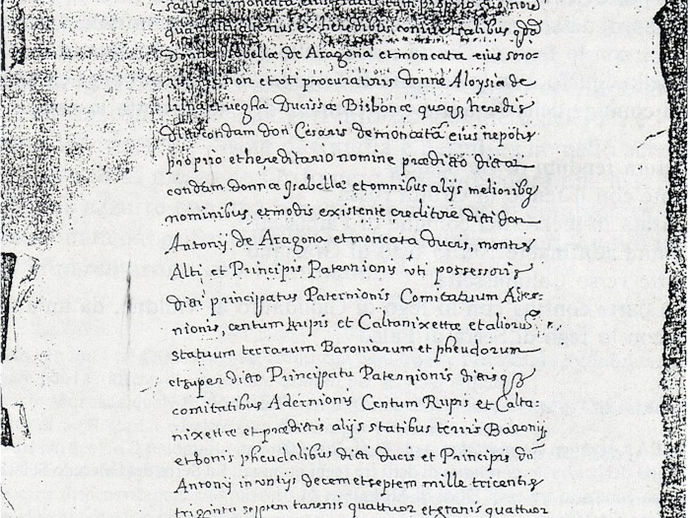 de moncata
ex heredibus universalibus
donnæ Isabellæ de Aragona et moncata eius soro-
non et uti procuratoris donne Aloysiæ de
luna et vegha Ducissæ Bisbonæ quoqȝ heredis
condam don Cesaris de moncata eius nepotis
proprio et hereditario nomine prædicto dictæ
condam donnæ ysabellæ et omnibus alys melioribȝ
nominibus, et modis existente creditore dicti don
Antony de Aragona et moncata ducis, montis
Alti et Principis Paternionis uti possessoris
dicti principatus Paternionis Comitatuum Ader-
nionis, centum rupis et Caltanixettæ et aliorū
statuum terrarum Baroniarum et pheudorum
et super dicto Principatu Paternionis dictisqȝ
comitatibus Adernionis Centum Rupis et Calta-
nixettæ et prædictis alys statibus terris Barony
et bonis pheudalibus dicti ducis et Principis don
Antony in untys decem et septem mille tricentis
triginta septem tarenis quattuor et granis quattuor